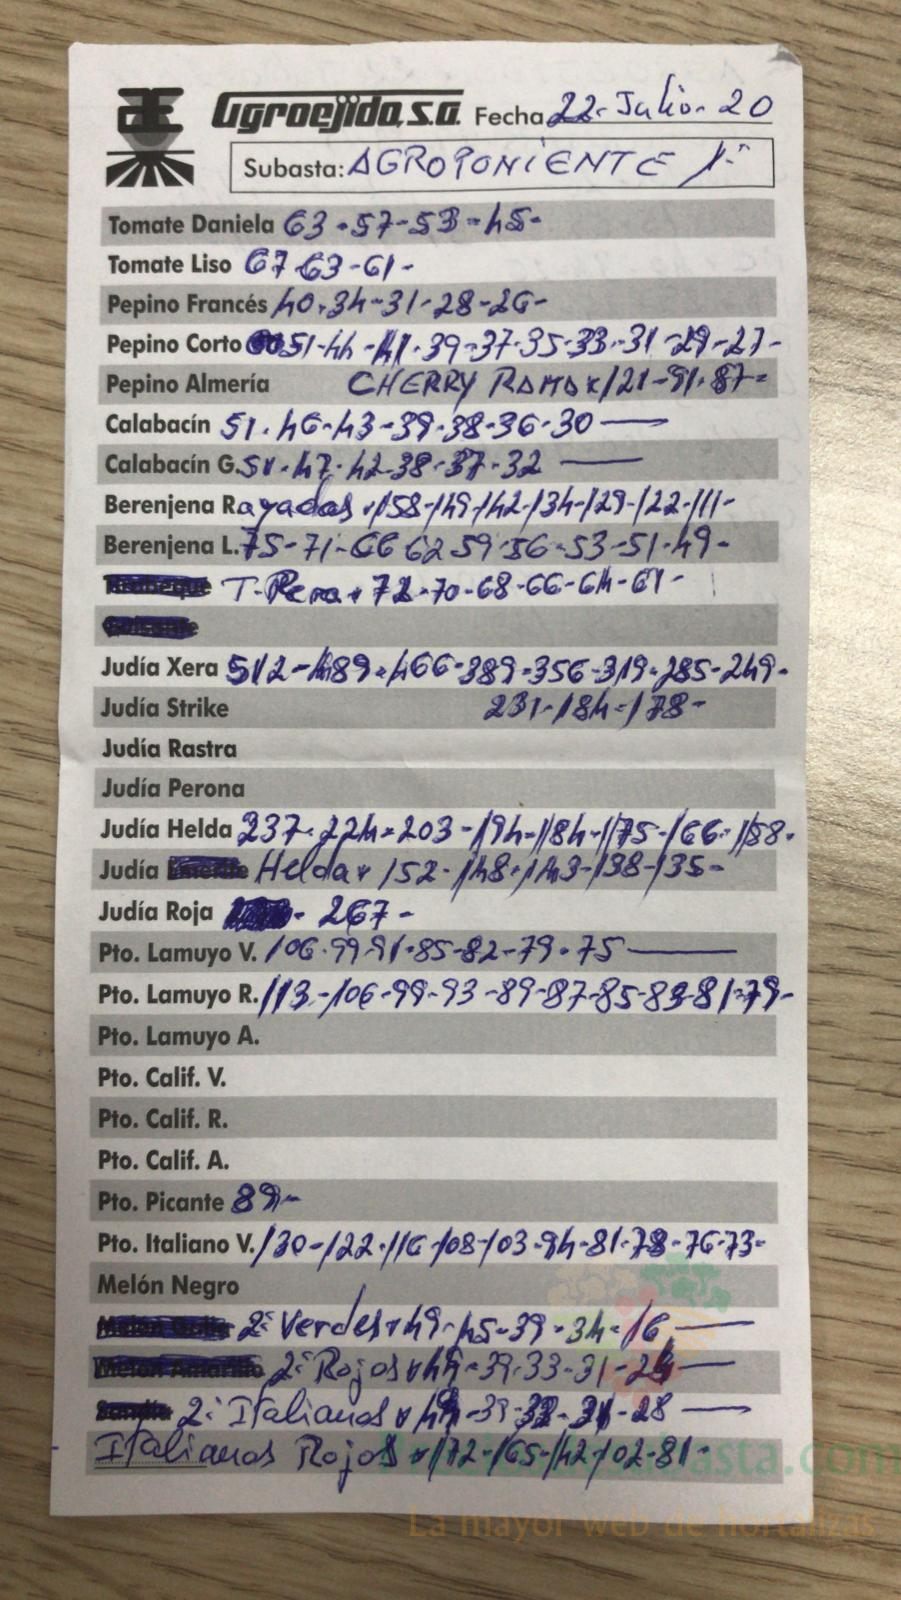 Agroejido, s.a. Fecha 22-Julio-20
Subasta: AGROPONIENTE
Tomate Daniela 63-57-53-45-
Tomate Liso 67-63-61-
Pepino Francés 40-34-31-28-26-
Pepino Corto 51-44-41-39-37-35-33-31-29-27-
Pepino Almería CHERRY RAMA x 121-91-87-
Calabacín 51-46-43-39-38-36-30
Calabacín G. 51-47-42-38-37-32
Berenjena Rayadas x 158-149-142-134-129-122-111-
Berenjena L. 75-71-66 62 59-56-53-51-49-
T. Pera x 72-70-68-66-64-61-
Judía Xera 512-489-466-389-356-319-285-249-
Judía Strike 231-184-178-
Judía Rastra
Judía Perona
Judía Helda 237-224-203-194-184-175-166-158-
Judía Helda x 152-148-143-138-135-
Judía Roja - 267-
Pto. Lamuyo V. 106-99-91-85-82-79-75
Pto. Lamuyo R. 113-106-99-93-89-87-85-83-81-79-
Pto. Lamuyo A.
Pto. Calif. V.
Pto. Calif. R.
Pto. Calif. A.
Pto. Picante 89-
Pto. Italiano V. 130-122-116-108-103-94-81-78-76-73-
Melón Negro
2ª Verdes x 49-45-39-34-16
2ª Rojos x 44-39-33-31-24
2ª Italianos x 44-39-32-31-28
Italianos Rojos x 172-165-142-102-81-
La mayor web de hortalizas